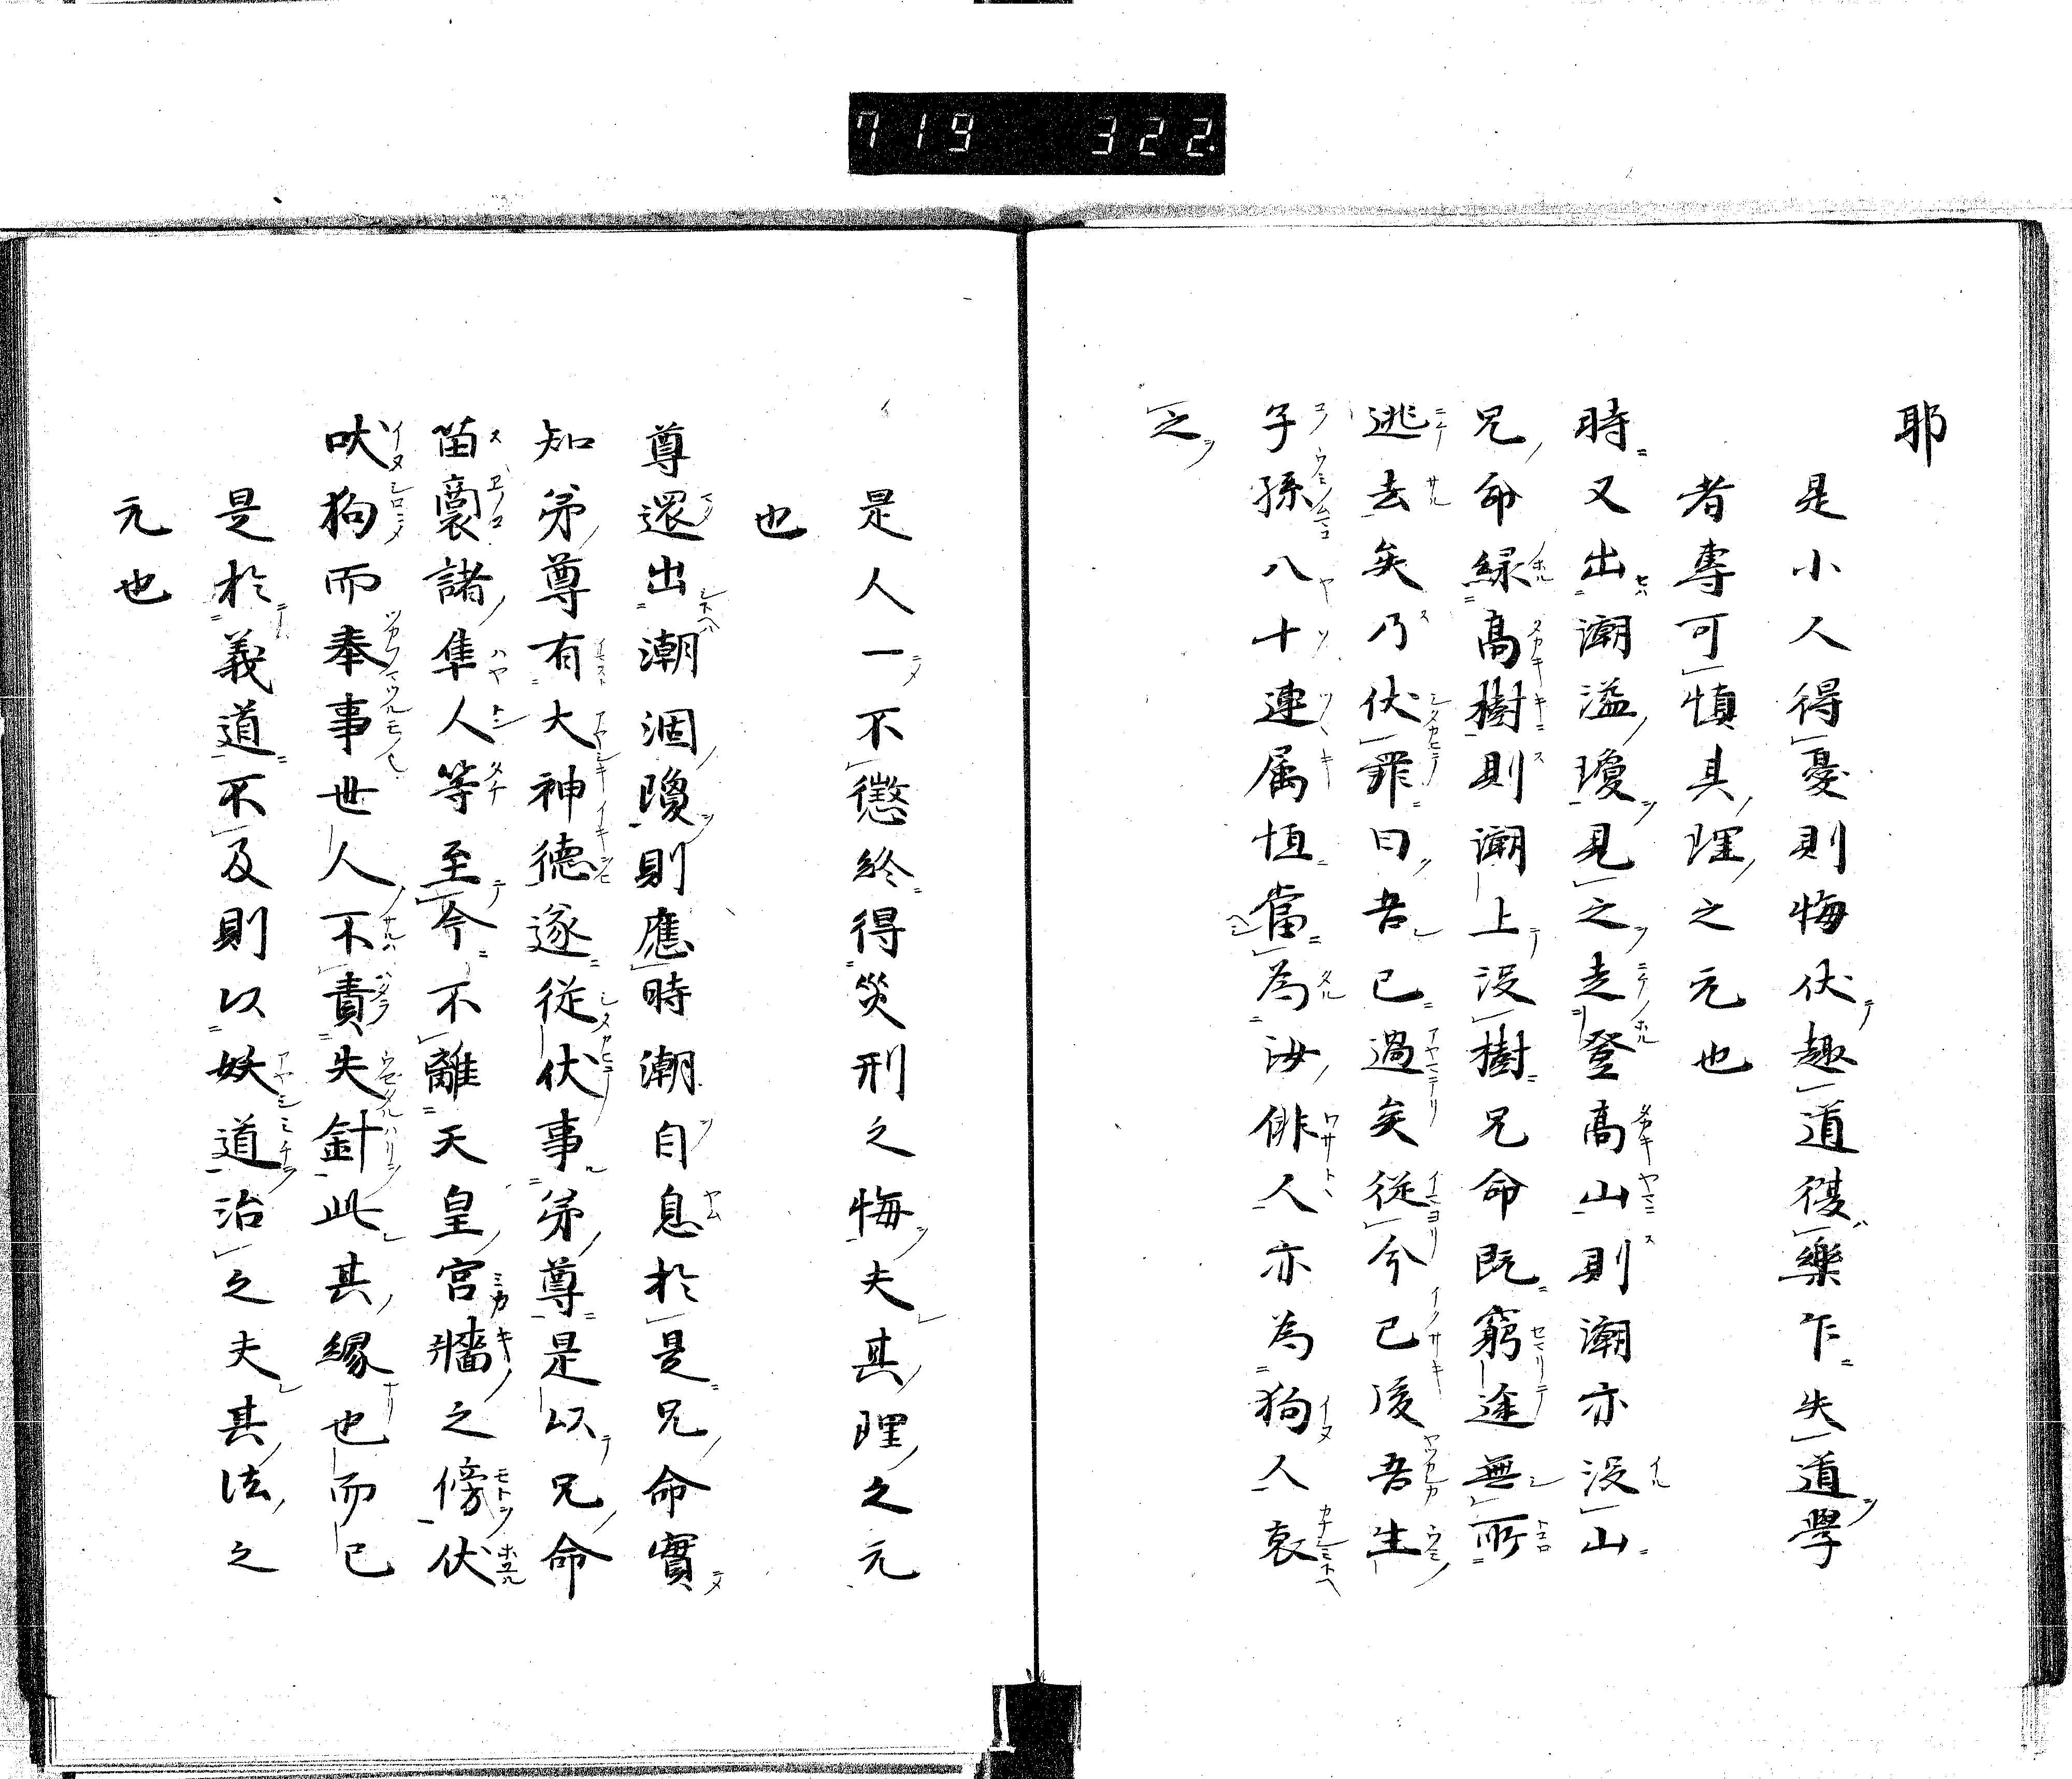 719 322
耶
是小人得憂則悔伏趣道復樂乍失道學
者專可慎其理之元也
時又出潮溢瓊見之走登高山則潮亦沒山
兄命緣高樹則潮上沒樹兄命既窮途無所
逃去矣乃伏罪曰吾已過矣從今已後吾生
子孫八十連属恒當為汝俳人亦為狗人哀
之
是人一不懲終得災刑之悔夫其理之元
也
尊還出潮涸瓊則應時潮自息於是兄命實
知弟尊有大神德遂從伏事弟尊是以兄命
苗裔諸隼人等至今不離天皇宮牆之傍伏
吠狗而奉事世人不責失針此其緣也而已
是於義道不及則以妖道治之夫其法之
元也